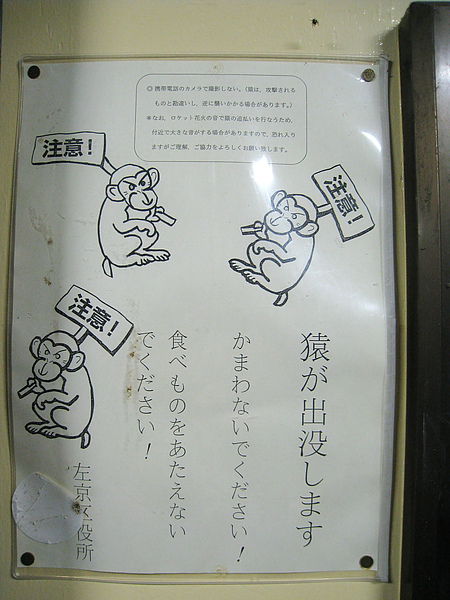 ◎携帯電話のカメラで撮影しない。(猿は、攻撃される
ものと勘違いし、逆に襲いかかる場合があります。)
※なお、ロケット花火の音で猿の追払いを行なうため、
付近で大きな音がする場合がありますので、恐れ入り
ますがご理解、ご協力をよろしくお願い致します。
注意!
注意!
注意!
猿が出没します
かまわないでください!
食べものをあたえない
でください!
左京区役所